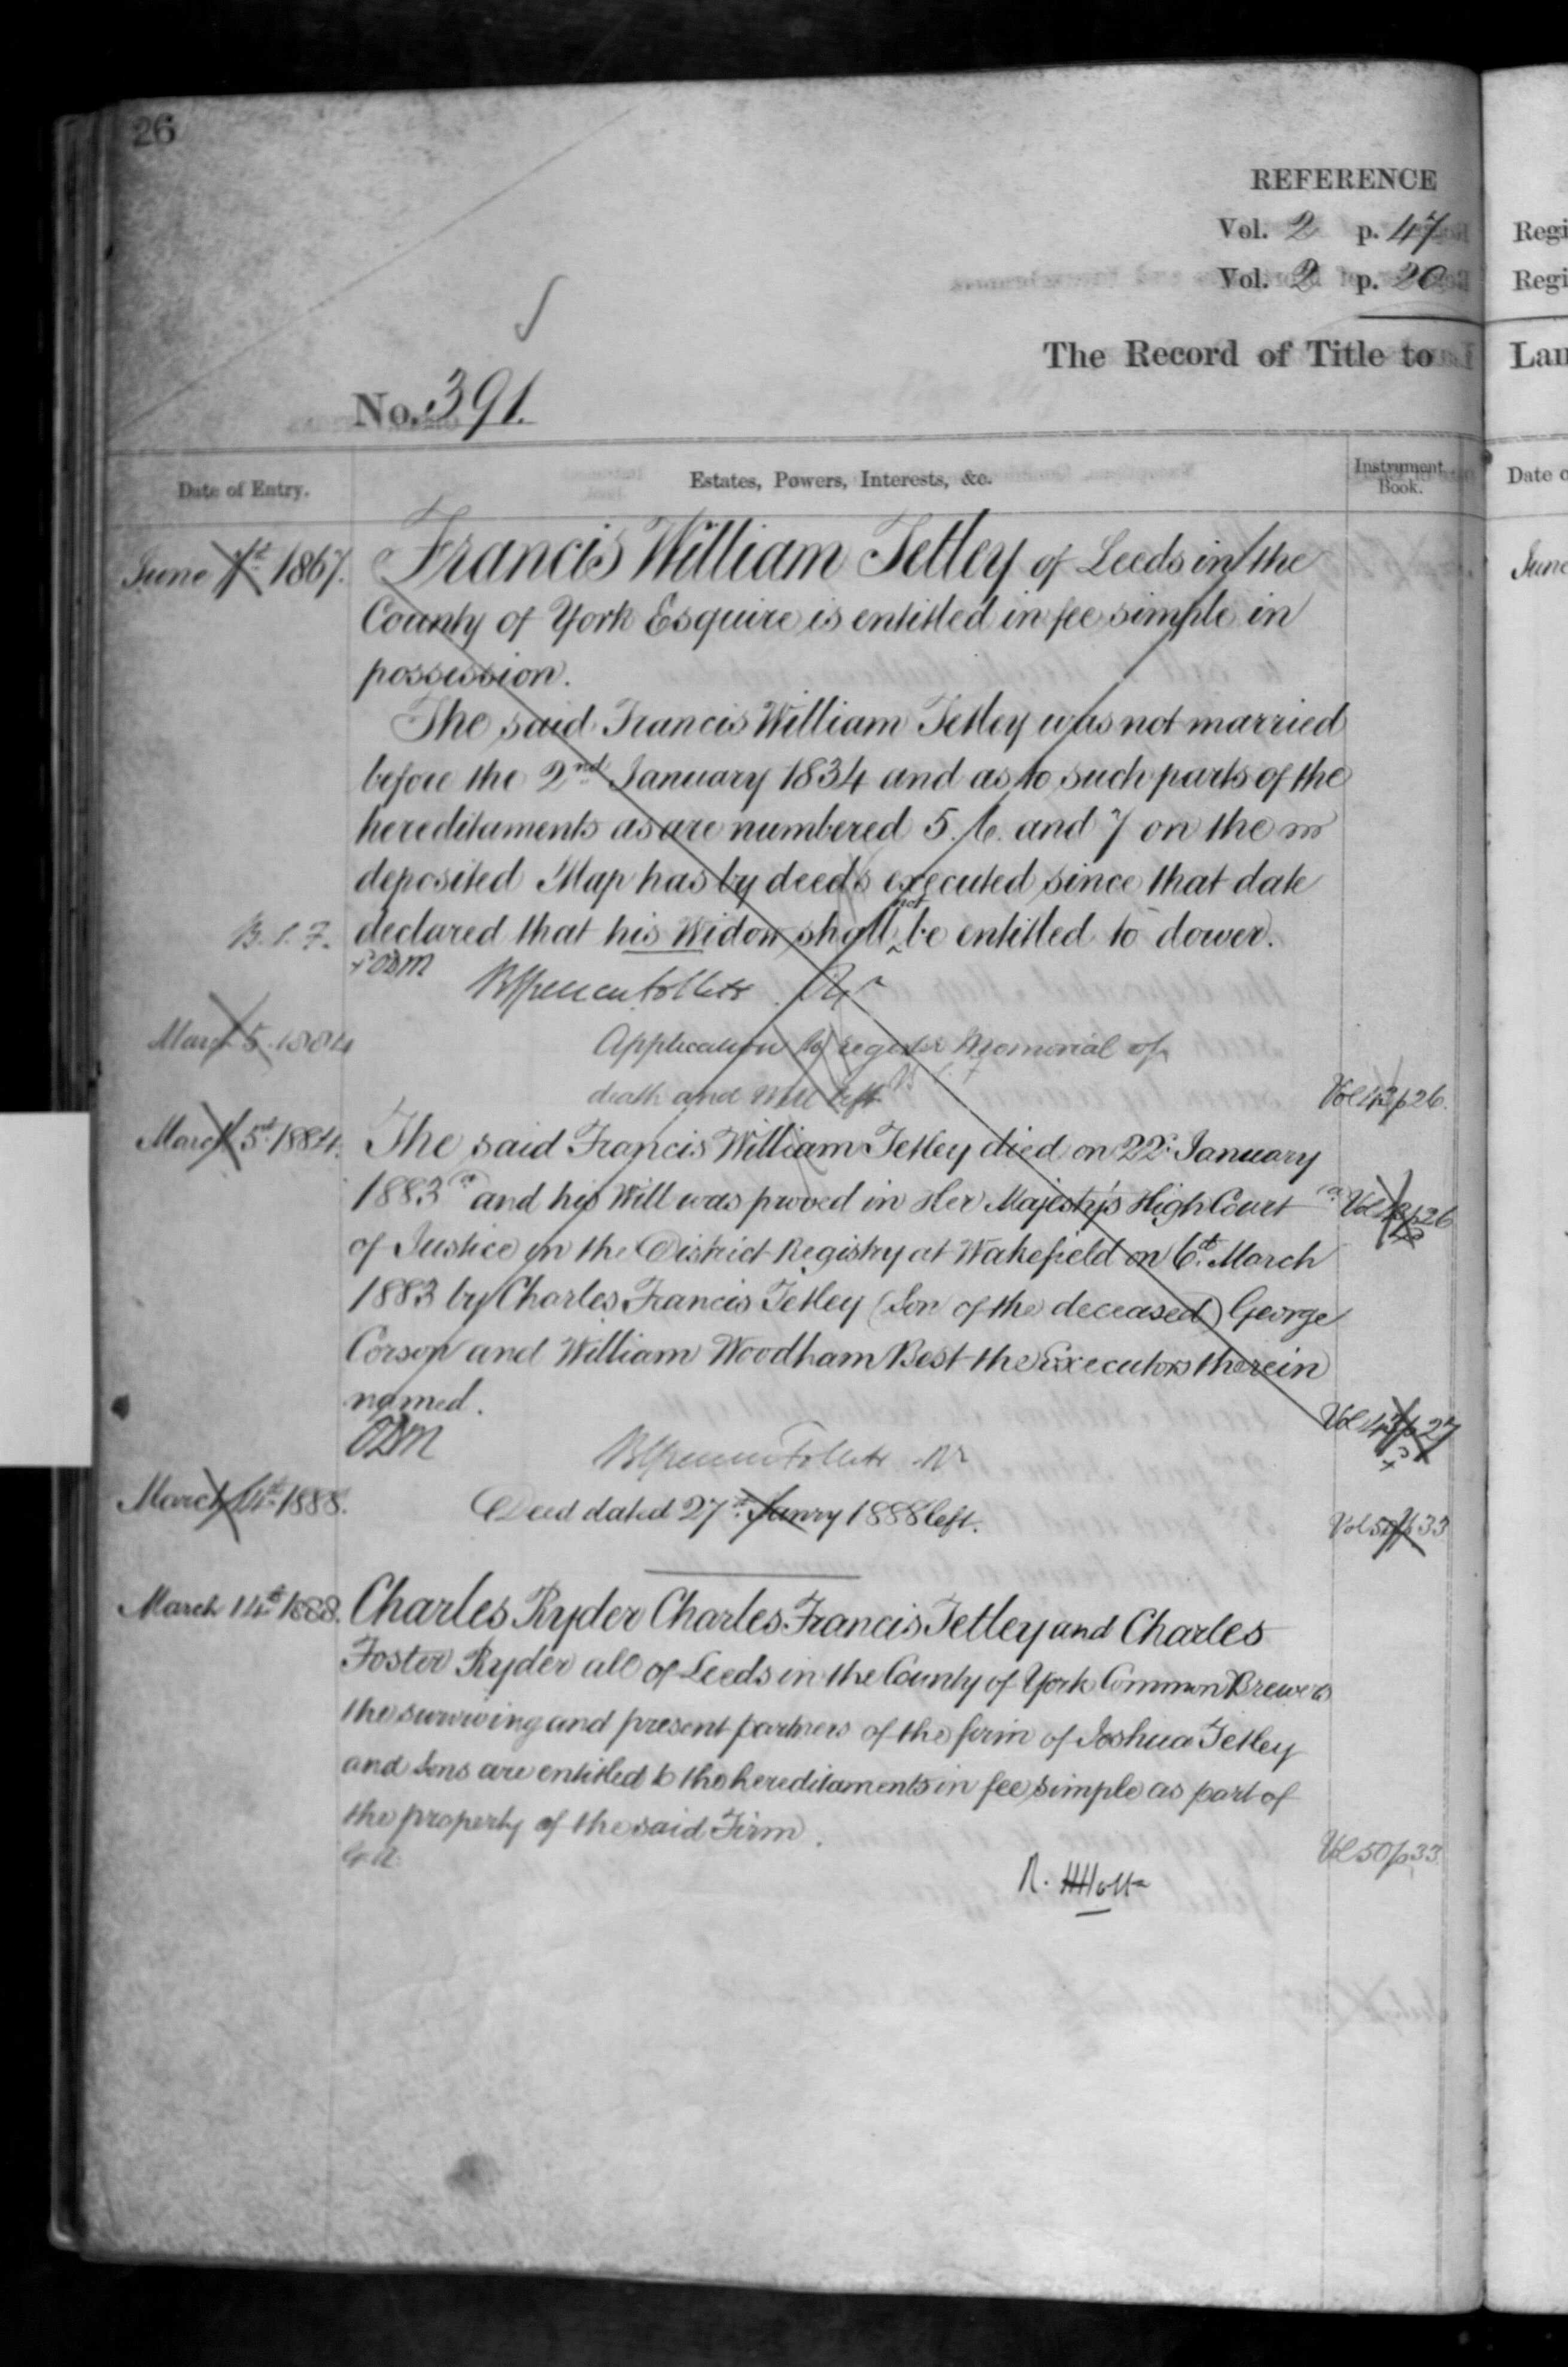 26
REFERENCE
Vol. 2 p. 47
Vol. 2 p. 20
The Record of Title to
No. 391.
Date of Entry.
Estates, Powers, Interests, &c.
Instrument Book.
June 1st 1867. Francis William Tetley of Leeds in the
County of York Esquire is entitled in fee simple in
possession.
The said Francis William Tetley was not married
before the 2nd January 1834 and as to such parts of the
hereditaments as are numbered 5. 6. and 7 on the
deposited Map has by deeds executed since that date
declared that his Widow shall not be entitled to dower.
March 5 1884 Application to register Memorial of
death and Will left Vol 43 p 26.
March 5th 1884. The said Francis William Tetley died on 22d January
1883 and his Will was proved in Her Majesty's High Court Vol 43 p 26
of Justice in the District Registry at Wakefield on 6th March
1883 by Charles Francis Tetley (Son of the deceased) George
Corson and William Woodham Best the Executors therein
named. Vol 43 p 27
ODM
March 14th 1888. Deed dated 27th Janry 1888 left. Vol 50 p 33
March 14th 1888. Charles Ryder Charles Francis Tetley and Charles
Foster Ryder all of Leeds in the County of York Common Brewers
the surviving and present partners of the firm of Joshua Tetley
and Sons are entitled to the hereditaments in fee simple as part of
the property of the said Firm. Vol 50 p 33
Regi
Regi
Lan
Date o
June